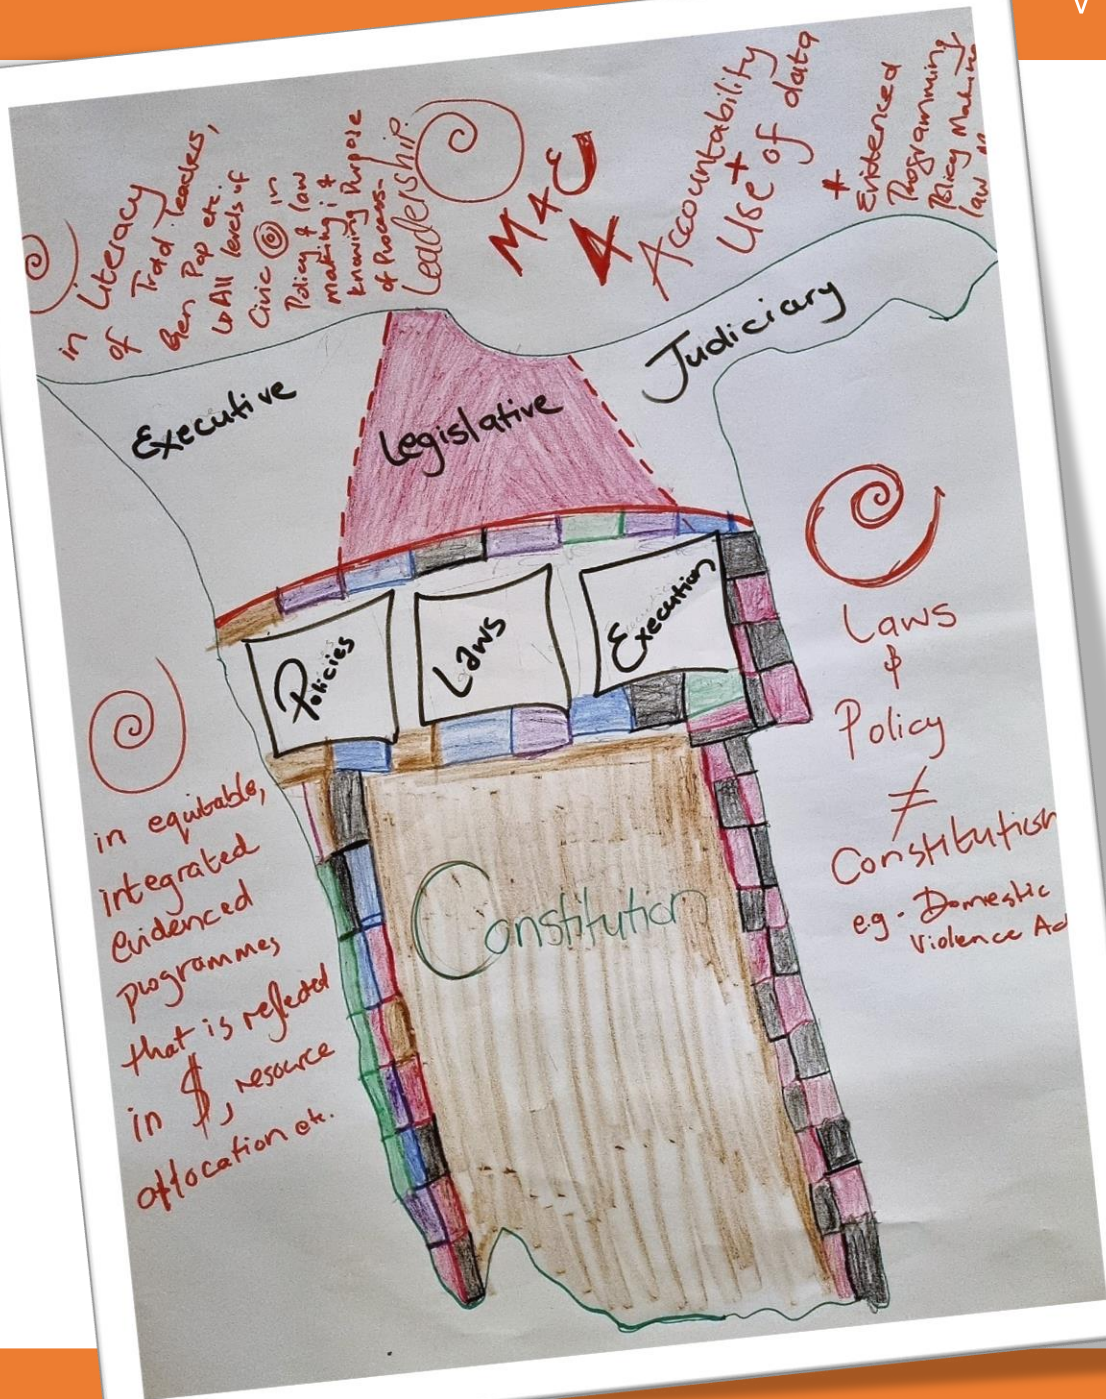 in Literacy
of Trad. leaders,
Gen Pop etc.
All levels of
Civic in
Policy & law
making i &
knowing Purpose
of Process-
Leadership.
M & E
4
Accountability
+
Use of data
+
Evidenced
Programming
Policy Making
law
Executive
Legislative
Judiciary
Policies
Laws
Execution
Constitution
in equitable,
integrated
evidenced
programmes
that is reflected
in $, resource
allocation etc.
Laws
&
Policy
≠
Constitution
e.g. Domestic
Violence Ac